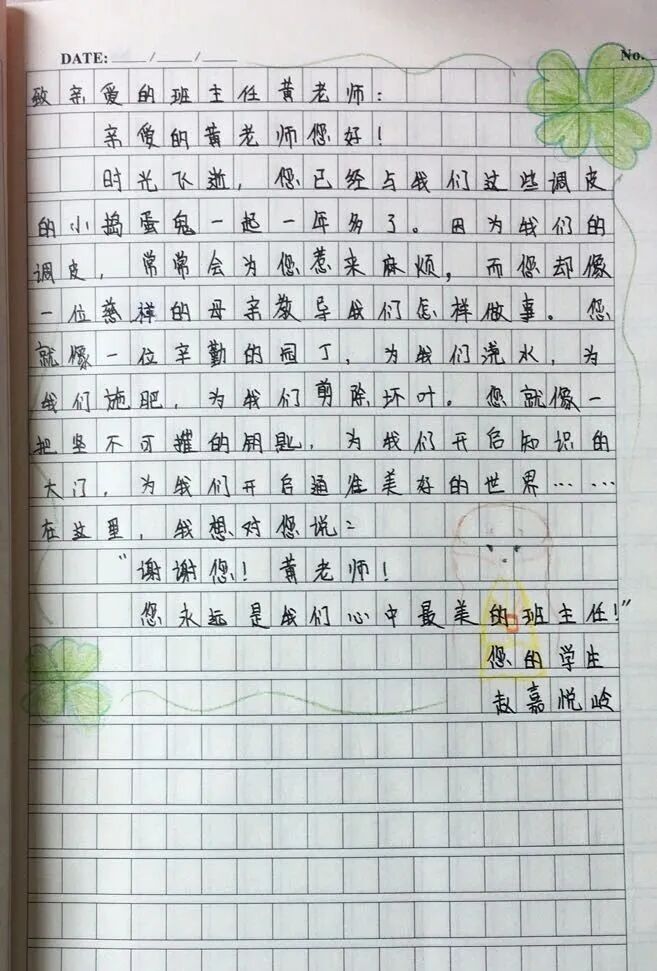 DATE: ___/___/___ No.
致亲爱的班主任黄老师：
亲爱的黄老师您好！
时光飞逝，您已经与我们这些调皮
的小捣蛋鬼一起一年多了。因为我们的
调皮，常常会为您惹来麻烦，而您却像
一位慈祥的母亲教导我们怎样做事。您
就像一位辛勤的园丁，为我们浇水，为
我们施肥，为我们剪除坏叶。您就像一
把坚不可摧的钥匙，为我们开启知识的
大门，为我们开启通往美好的世界……
在这里，我想对您说：
“谢谢您！黄老师！
您永远是我们心中最美的班主任！”
您的学生
赵嘉悦岭